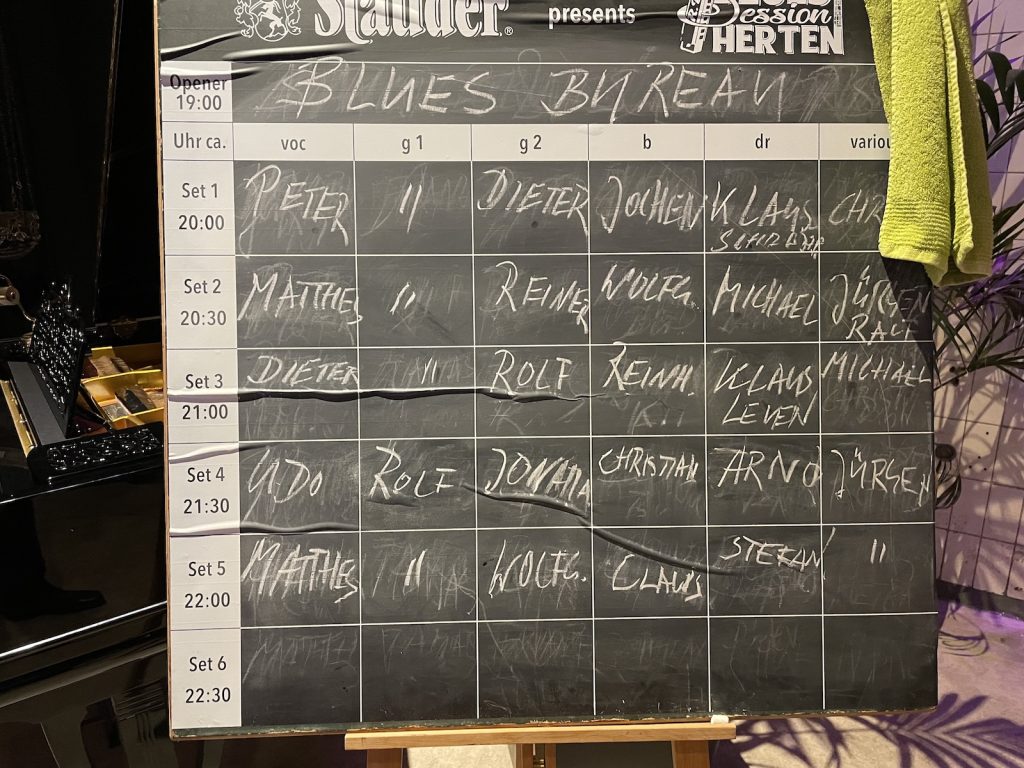 Stauder® presents Session
HERTEN
Opener
19:00 BLUES BUREAU
Uhr ca. voc g 1 g 2 b dr variou
Set 1
20:00 PETER " DIETER JOCHEN KLAUS CHR
Set 2
20:30 MATTHES " REINER WOLFG. MICHAEL JÜRGEN
RALF
Set 3
21:00 DIETER " ROLF REINH. KLAUS MICHAEL
LEVEN
Set 4
21:30 UDO ROLF CHRISTIAN ARNO JÜRGEN
Set 5
22:00 MATTHES " WOLFG. CLAUS STEFAN "
Set 6
22:30